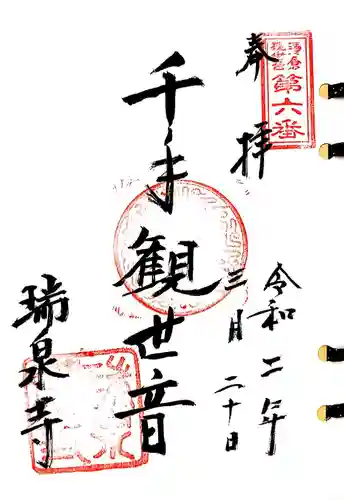 鎌倉
観世音
第六番
奉拝
令和二年
三月二十日
千手観世音
瑞泉寺